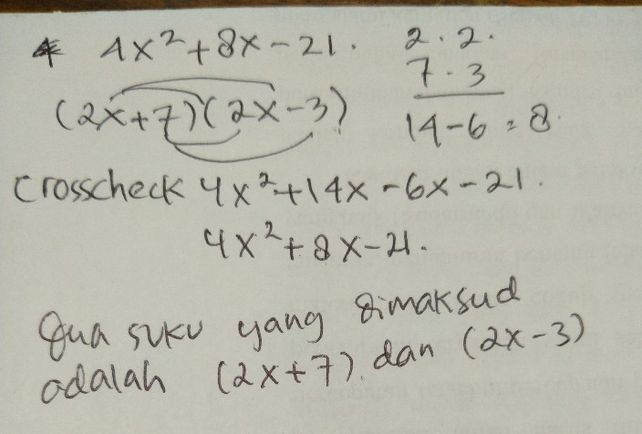 4x²+8x-21. 2.2.
7.3
(2x+7)(2x-3) 14-6=8.
Crosscheck 4x²+14x-6x-21.
4x²+8x-21.
Dua suku yang dimaksud
adalah (2x+7). dan (2x-3)